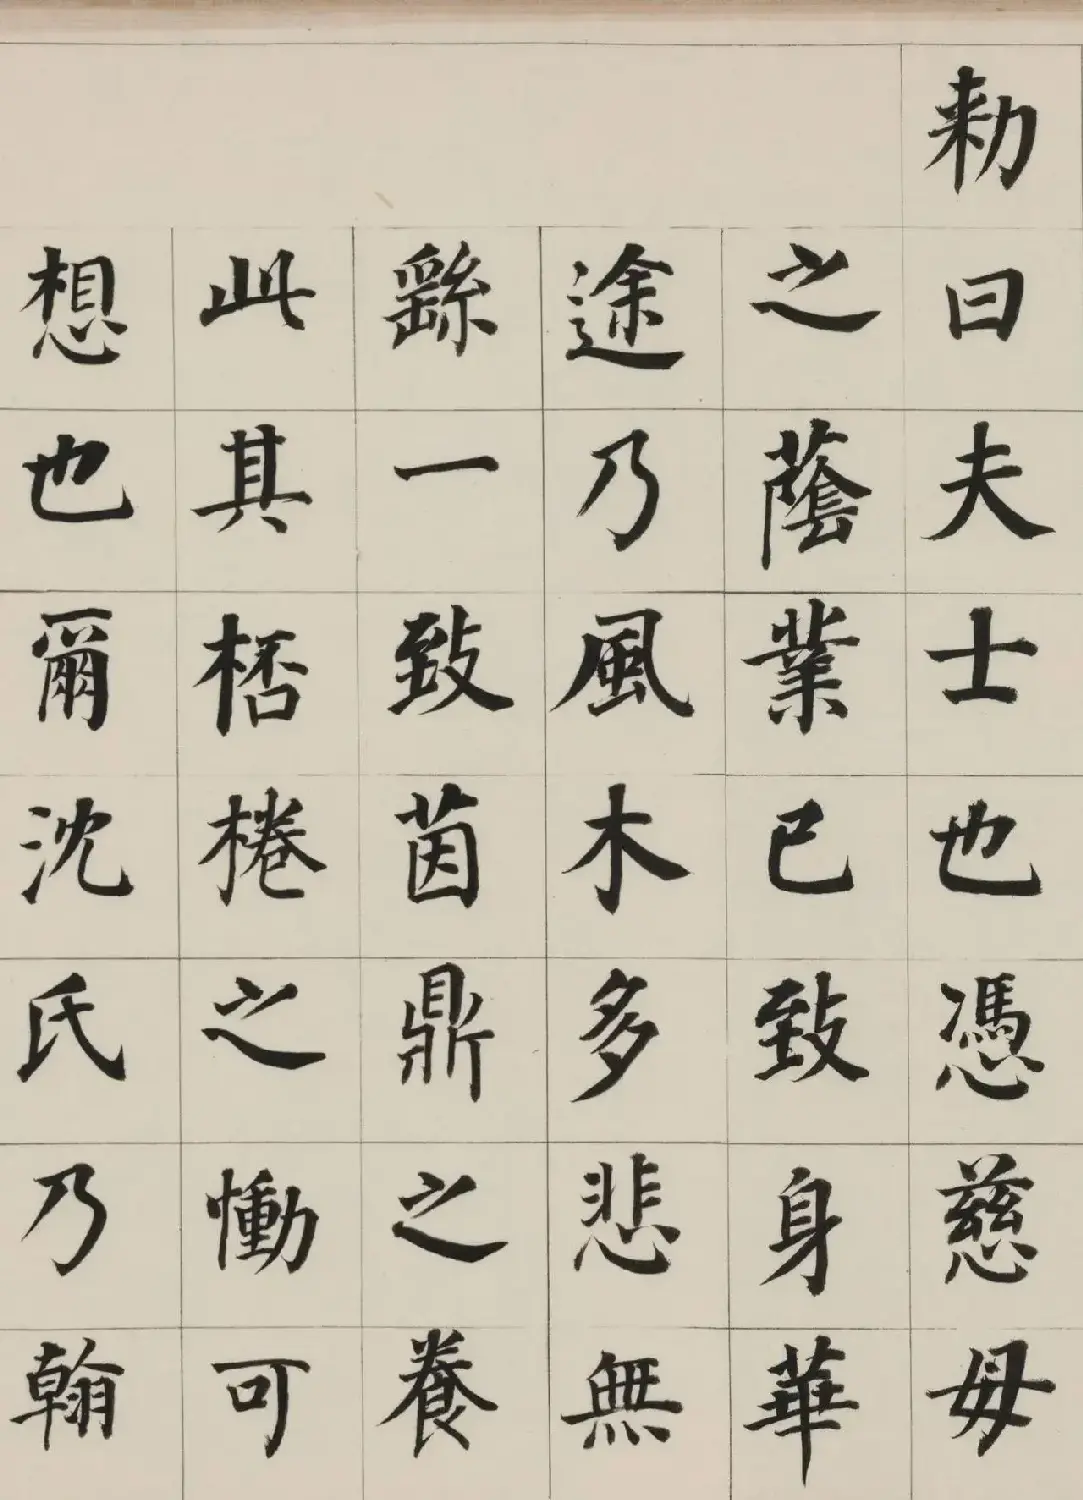 勑曰夫士也憑慈母
之蔭業已致身華
途乃風木多悲無
繇一致茵鼎之養
此其桮棬之慟可
想也爾沈氏乃翰